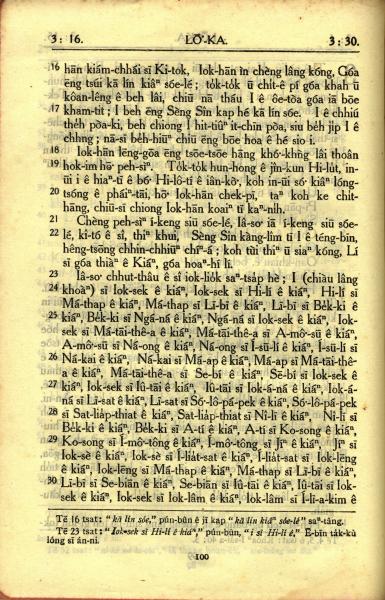 3 : 16. LŌ͘-KA. 3 : 30.
16 hān kiám-chhái sī Ki-tok, Iok-hān ìn chèng lâng kóng, Góa
ēng tsúi kā lín kiâⁿ sóe-lé; tók-tók ū chi̍t-ê pí góa khah ū
kôan-lêng ê beh lâi, chiū nā tháu I ê ôe-tòa góa iā bōe
17 kham-tit; I beh ēng Sèng Sîn kap hé kā lín sóe. I ê chhiú
the̍h pòa-ki, beh chiong I hit-tiûⁿ it-chīn pòa, siu be̍h ji̍p I ê
chhng; nā-sī be̍h-hiuⁿ chiū ēng bōe hoa ê hé sio i.
18 Iok-hān lēng-gōa ēng tsōe-tsōe hāng khó͘-khǹg lâi thoân
19 hok-im hō͘ peh-sìⁿ. To̍k-to̍k hun-hong ê jîn-kun Hi-lu̍t, in-
ūi i ê hiaⁿ-tī ê bó͘ Hi-lô-tí ê iân-kò͘, koh in-ūi só͘ kiâⁿ lóng-
20 tsóng ê pháiⁿ-tāi, hō͘ Iok-hān chek-pī, taⁿ koh ke chi̍t-
hāng, chiū-sī chiong Iok-hān koaiⁿ tī kaⁿ-nih.
21 Chèng peh-sìⁿ í-keng siū sóe-lé, Iâ-so͘ iā í-keng siū sóe-
22 lé, kî-tó ê sî, thiⁿ khui, Sèng Sîn kàng-lîm tī I ê téng-bīn,
hêng-tsōng chhin-chhiūⁿ chíⁿ-á; koh tùi thiⁿ ū siaⁿ kóng, Lí
sī góa thiàⁿ ê Kiáⁿ, góa hoaⁿ-hí lí.
23 Iâ-so͘ chhut-thâu ê sî iok-lio̍k saⁿ-tsa̍p hè; I (chiàu lâng
24 khoàⁿ) sī Iok-sek ê kiáⁿ, Iok-sek sī Hi-lí ê kiáⁿ, Hi-lí sī
Má-thap ê kiáⁿ, Má-thap sī Lī-bī ê kiáⁿ, Lī-bī sī Be̍k-ki ê
25 kiáⁿ, Be̍k-ki sī Ngá-ná ê kiáⁿ, Ngá-ná sī Iok-sek ê kiáⁿ, Iok-
sek sī Má-tāi-thê-a ê kiáⁿ, Má-tāi-thê-a sī A-mô͘-sū ê kiáⁿ,
A-mô͘-sū sī Ná-ong ê kiáⁿ, Ná-ong sī Í-sū-lí ê kiáⁿ, Í-sū-lí sī
26 Ná-kai ê kiáⁿ, Ná-kai sī Má-ap ê kiáⁿ, Má-ap sī Má-tāi-thê-
a ê kiáⁿ, Má-tāi-thê-a sī Se-bí ê kiáⁿ, Sē-bí sī Iok-sek ê
27 kiáⁿ, Iok-sek sī Iû-tāi ê kiáⁿ, Iû-tāi sī Iok-á-ná ê kiáⁿ, Iok-á-
ná sī Lī-sat ê kiáⁿ, Lī-sat sī Só͘-lô-pá-pek ê kiáⁿ, Só͘-lô-pá-pek
28 sī Sat-lia̍p-thiat ê kiáⁿ, Sat-lia̍p-thiat sī Nî-lī ê kiáⁿ, Nî-lī sī
Be̍k-ki ê kiáⁿ, Be̍k-ki sī A-tí ê kiáⁿ, A-tí sī Ko-song ê kiáⁿ,
29 Ko-song sī Í-mô-tông ê kiáⁿ, Í-mô-tông sī Jíⁿ ê kiáⁿ, Jíⁿ sī
Iok-sè ê kiáⁿ, Iok-sè sī Í-lia̍t-sat ê kiáⁿ, Í-lia̍t-sat sī Iok-lēng
ê kiáⁿ, Iok-lēng sī Má-thap ê kiáⁿ, Má-thap sī Lī-bī ê kiáⁿ,
30 Lī-bī sī Se-biān ê kiáⁿ, Se-biān sī Iû-tāi ê kiáⁿ, Iû-tāi sī Iok-
sek ê kiáⁿ, Iok-sek sī Iok-lâm ê kiáⁿ, Iok-lâm sī Í-lī-a-kim ê
Tē 16 tsat: "kā lín sóe," pún-bûn ê jī kap "kā lín kiâⁿ sóe-lé" saⁿ-tâng.
Tē 23 tsat: "Iok-sek sī Hi-lí ê kiáⁿ," pún-bûn, "i sī Hi-lí ê," Ē-bīn ta̍k-kù
lóng sī án-ni.
100